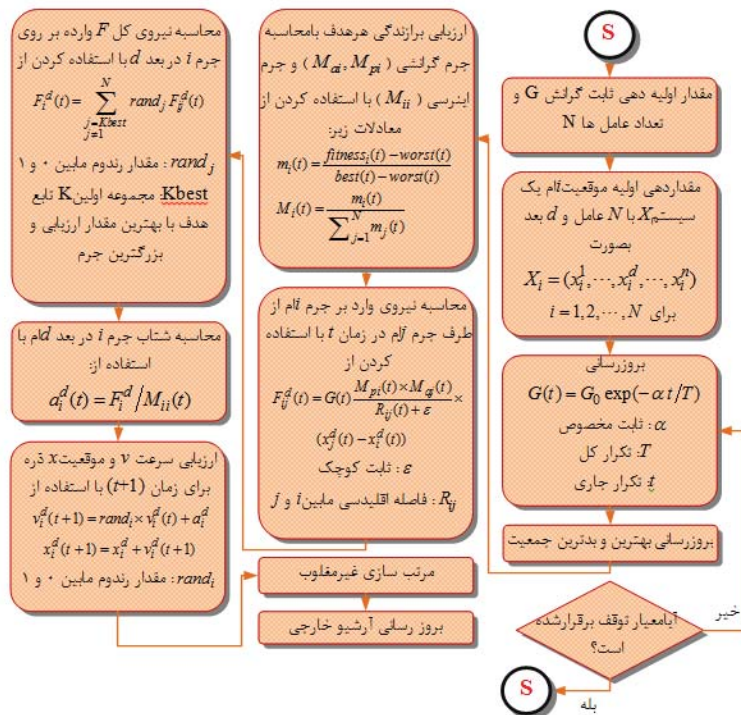 S
مقدار اولیه دهی ثابت گرانش G و
تعداد عامل ها N
مقداردهی اولیه موقعیت iام یک
سیستم X با N عامل و d بعد
بصورت
X_i = (x_i^1, ⋯, x_i^d, ⋯, x_i^n)
برای i = 1, 2, ⋯, N
بروزرسانی
G(t) = G_0 exp(−α t/T)
α : ثابت مخصوص
T: تکرار کل
t: تکرار جاری
بروزرسانی بهترین و بدترین جمعیت
ارزیابی برازندگی هرهدف بامحاسبه
جرم گرانشی (M_ai, M_pi) و جرم
اینرسی (M_ii) با استفاده کردن از
معادلات زیر:
m_i(t) = (fitness_i(t) − worst(t)) / (best(t) − worst(t))
M_i(t) = m_i(t) / ∑_{j=1}^N m_j(t)
محاسبه نیروی وارد بر جرم iام از
طرف جرم jام در زمان t با استفاده
کردن از
F_ij^d(t) = G(t) (M_pi(t) × M_aj(t)) / (R_ij(t) + ε) ×
(x_j^d(t) − x_i^d(t))
ε : ثابت کوچک
R_ij : فاصله اقلیدسی مابین i و j
محاسبه نیروی کل F وارده بر روی
جرم i در بعد d با استفاده کردن از
F_i^d(t) = ∑_{j=Kbest, j≠1}^N rand_j F_ij^d(t)
rand_j : مقدار رندوم مابین ۰ و ۱
Kbest: مجموعه اولین K تابع
هدف با بهترین مقدار ارزیابی و
بزرگترین جرم
محاسبه شتاب جرم i در بعد dام با
استفاده از:
a_i^d(t) = F_i^d / M_ii(t)
ارزیابی سرعت v و موقعیت x ذره
برای زمان (t+1) با استفاده از
v_i^d(t+1) = rand_i × v_i^d(t) + a_i^d
x_i^d(t+1) = x_i^d + v_i^d(t+1)
rand_i : مقدار رندوم مابین ۰ و ۱
مرتب سازی غیرمغلوب
بروز رسانی آرشیو خارجی
آیامعیار توقف برقرارشده
است؟
خیر
بله
S